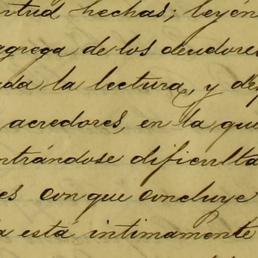 ntud hechas; leyén
agrega de los deudores
ada la lectura, y de
acredores, en la que
ntrándose dificulta
es con que concluye
a está intimamente